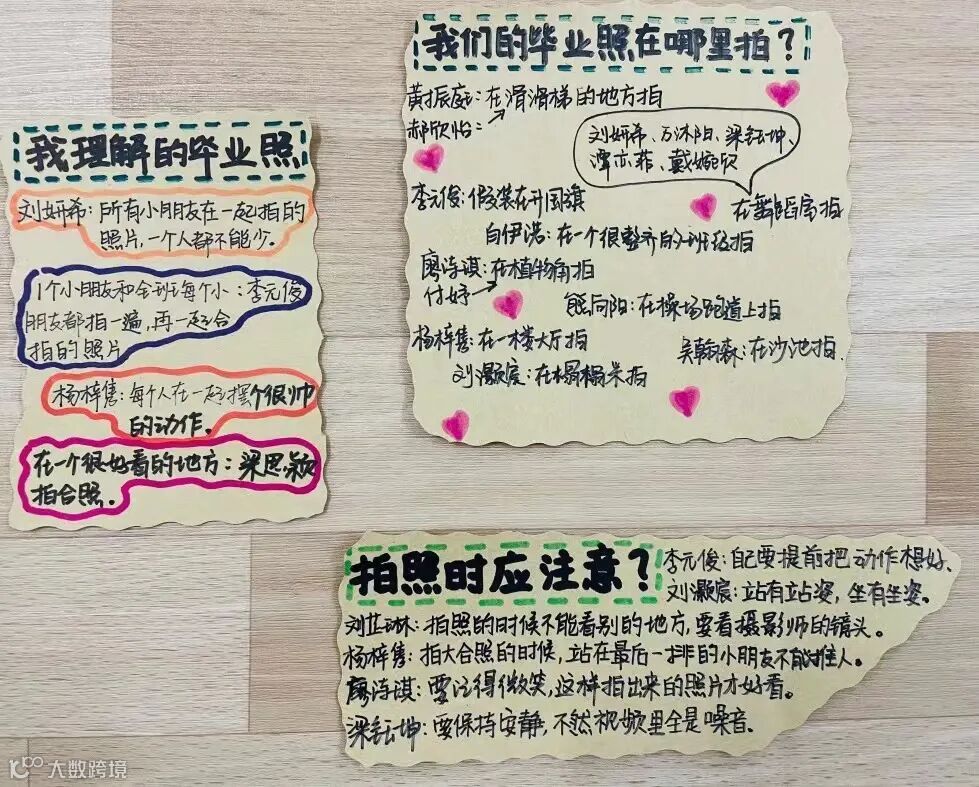 我理解的毕业照
刘妍希：所有小朋友在一起拍的
照片，一个人都不能少。
1个小朋友和全班每个小：李元俊
朋友都拍一遍，再一起合
拍的照片
杨梓隽：每个人在一起摆个很帅
的动作。
在一个很好看的地方：梁思颖
拍合照。
我们的毕业照在哪里拍？
黄振庭：在滑滑梯的地方拍
郝欣怡：
刘妍希、万沐阳、梁钰坤、
谭亦菲、戴婉欣
在舞蹈房拍
李元俊：假装在升国旗
白伊浩：在一个很整齐的班级拍
廖诗淇：在植物角拍
付妤
熊向阳：在操场跑道上拍
杨梓隽：在一楼大厅拍
吴翰森：在沙池拍.
刘灏宸：在榻榻米拍
拍照时应注意？
李元俊：自己要提前把动作想好、
刘灏宸：站有站姿，坐有坐姿。
刘芷琳：拍照的时候不能看别的地方，要看摄影师的镜头。
杨梓隽：拍大合照的时候，站在最后一排的小朋友不能推人。
廖诗淇：要记得微笑，这样拍出来的照片才好看。
梁钰坤：要保持安静，不然视频里全是噪音.
大数跨境